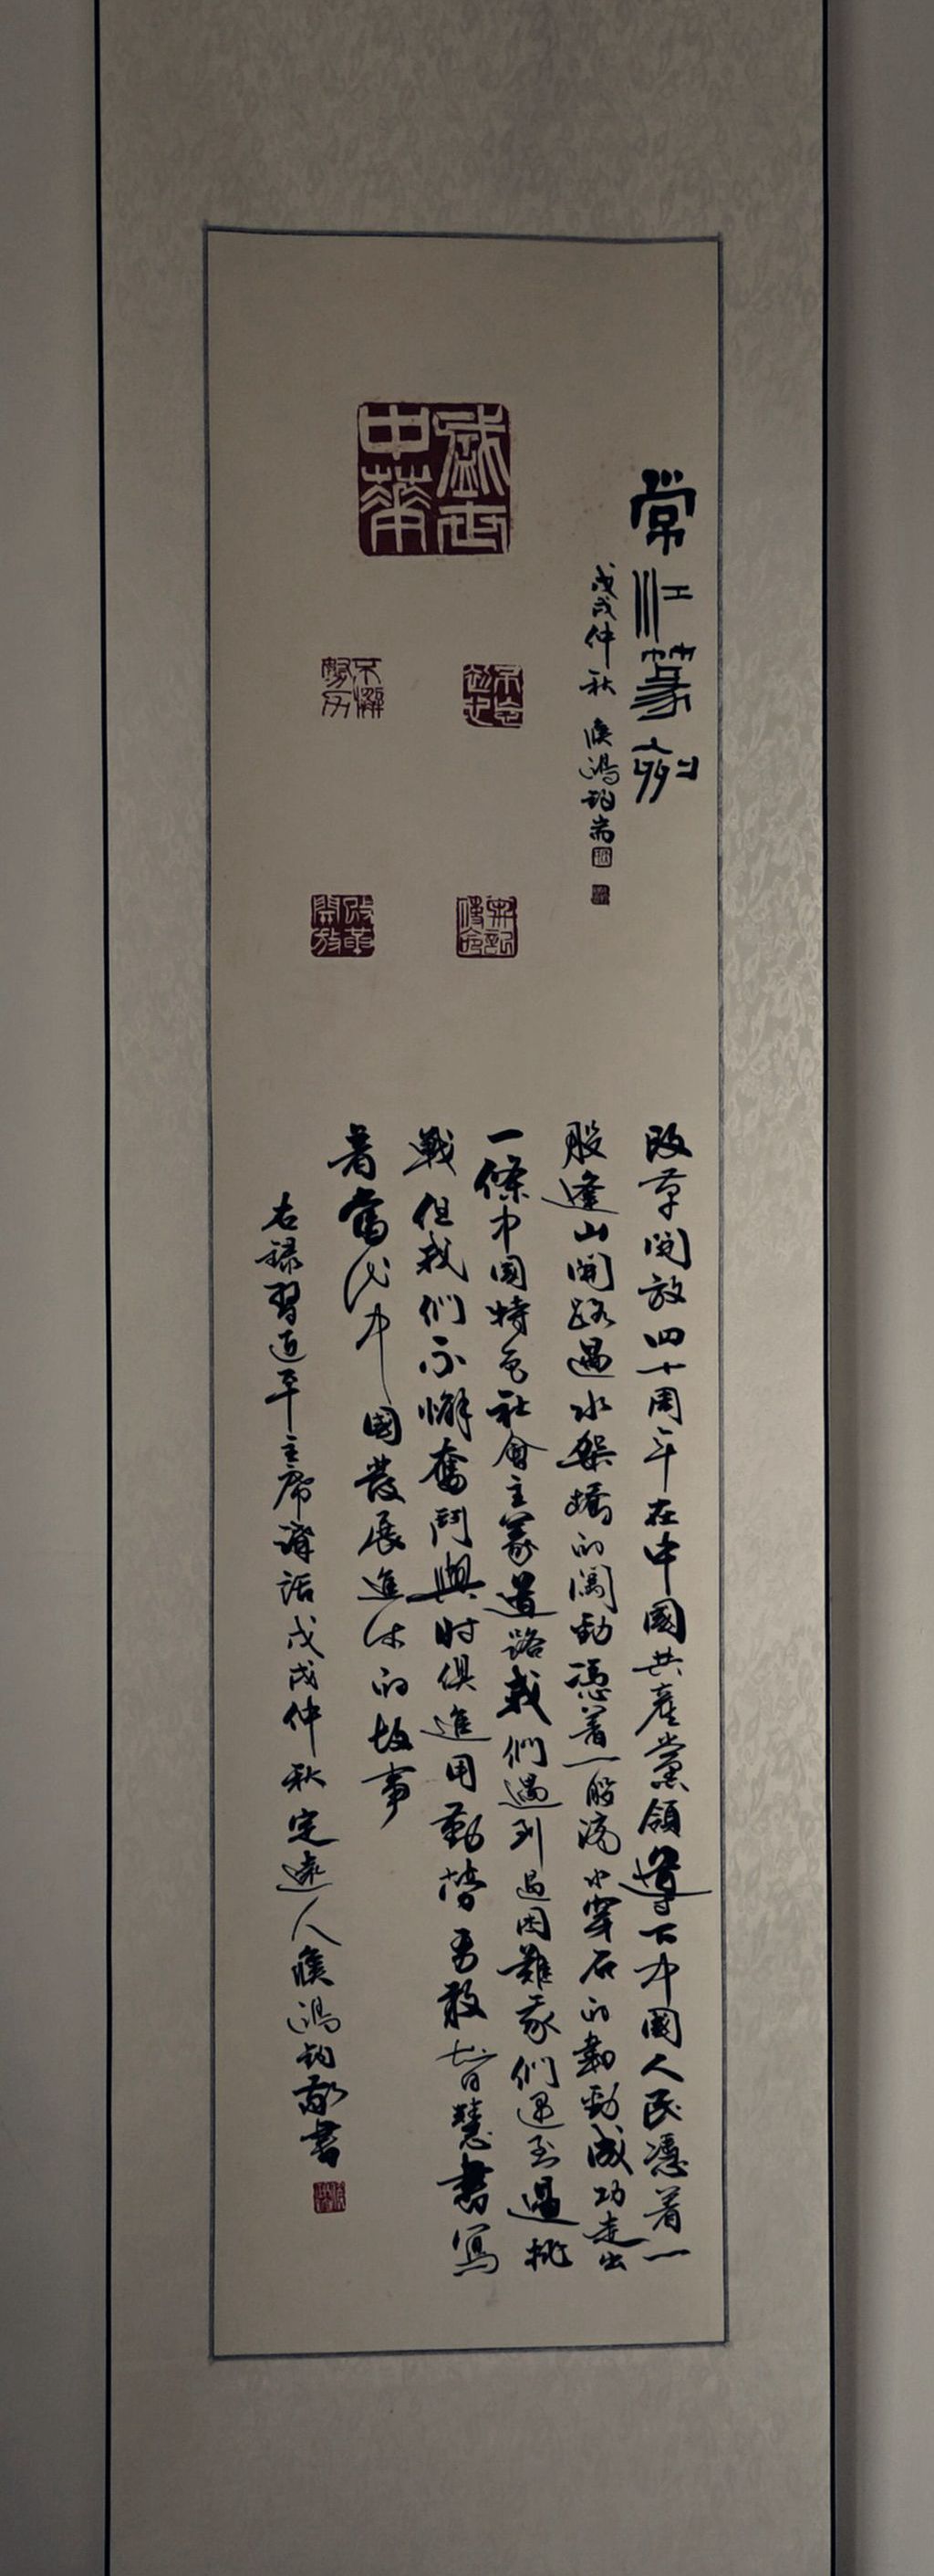 常江篆刻
戊戌仲秋 侯鴻鈞耑
盛世中華
不忘初心
不懈努力
牢記使命
改革開放
改革開放四十周年在中國共產黨領導下中國人民憑着一
股逢山開路遇水架橋的闖勁憑着一股滴水穿石的韌勁成功走出
一條中国特色社會主義道路我們遇到過困難我們遇到過挑
戰但我们不懈奮鬥與时俱進用勤勞勇敢智慧書寫
著當代中國發展進步的故事
右録習近平主席講話戊戌仲秋定遠人侯鴻鈞敬書